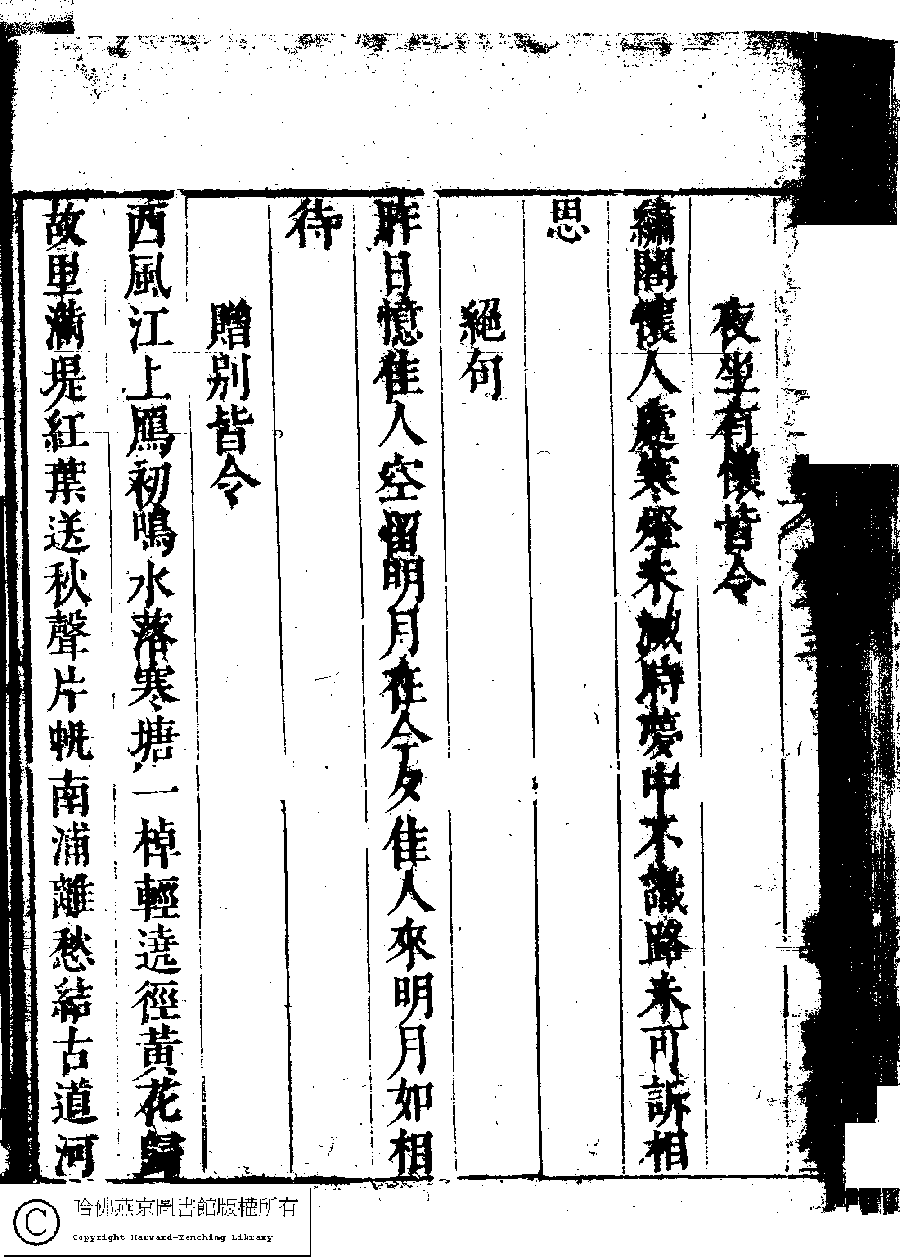 夜坐有懷皆令
繡閣懷人處寒燈未滅時夢中不識路未可訴相
思
絕句
昨日憶佳人空留明月在今夕佳人來明月如相
待
贈別皆令
西風江上鴈初鳴水落寒塘一棹輕遶徑黃花歸
故里滿堤紅葉送秋聲片帆南浦離愁結古道河
哈佛燕京圖書館版權所有
Copyright Harvard-Yenching Library